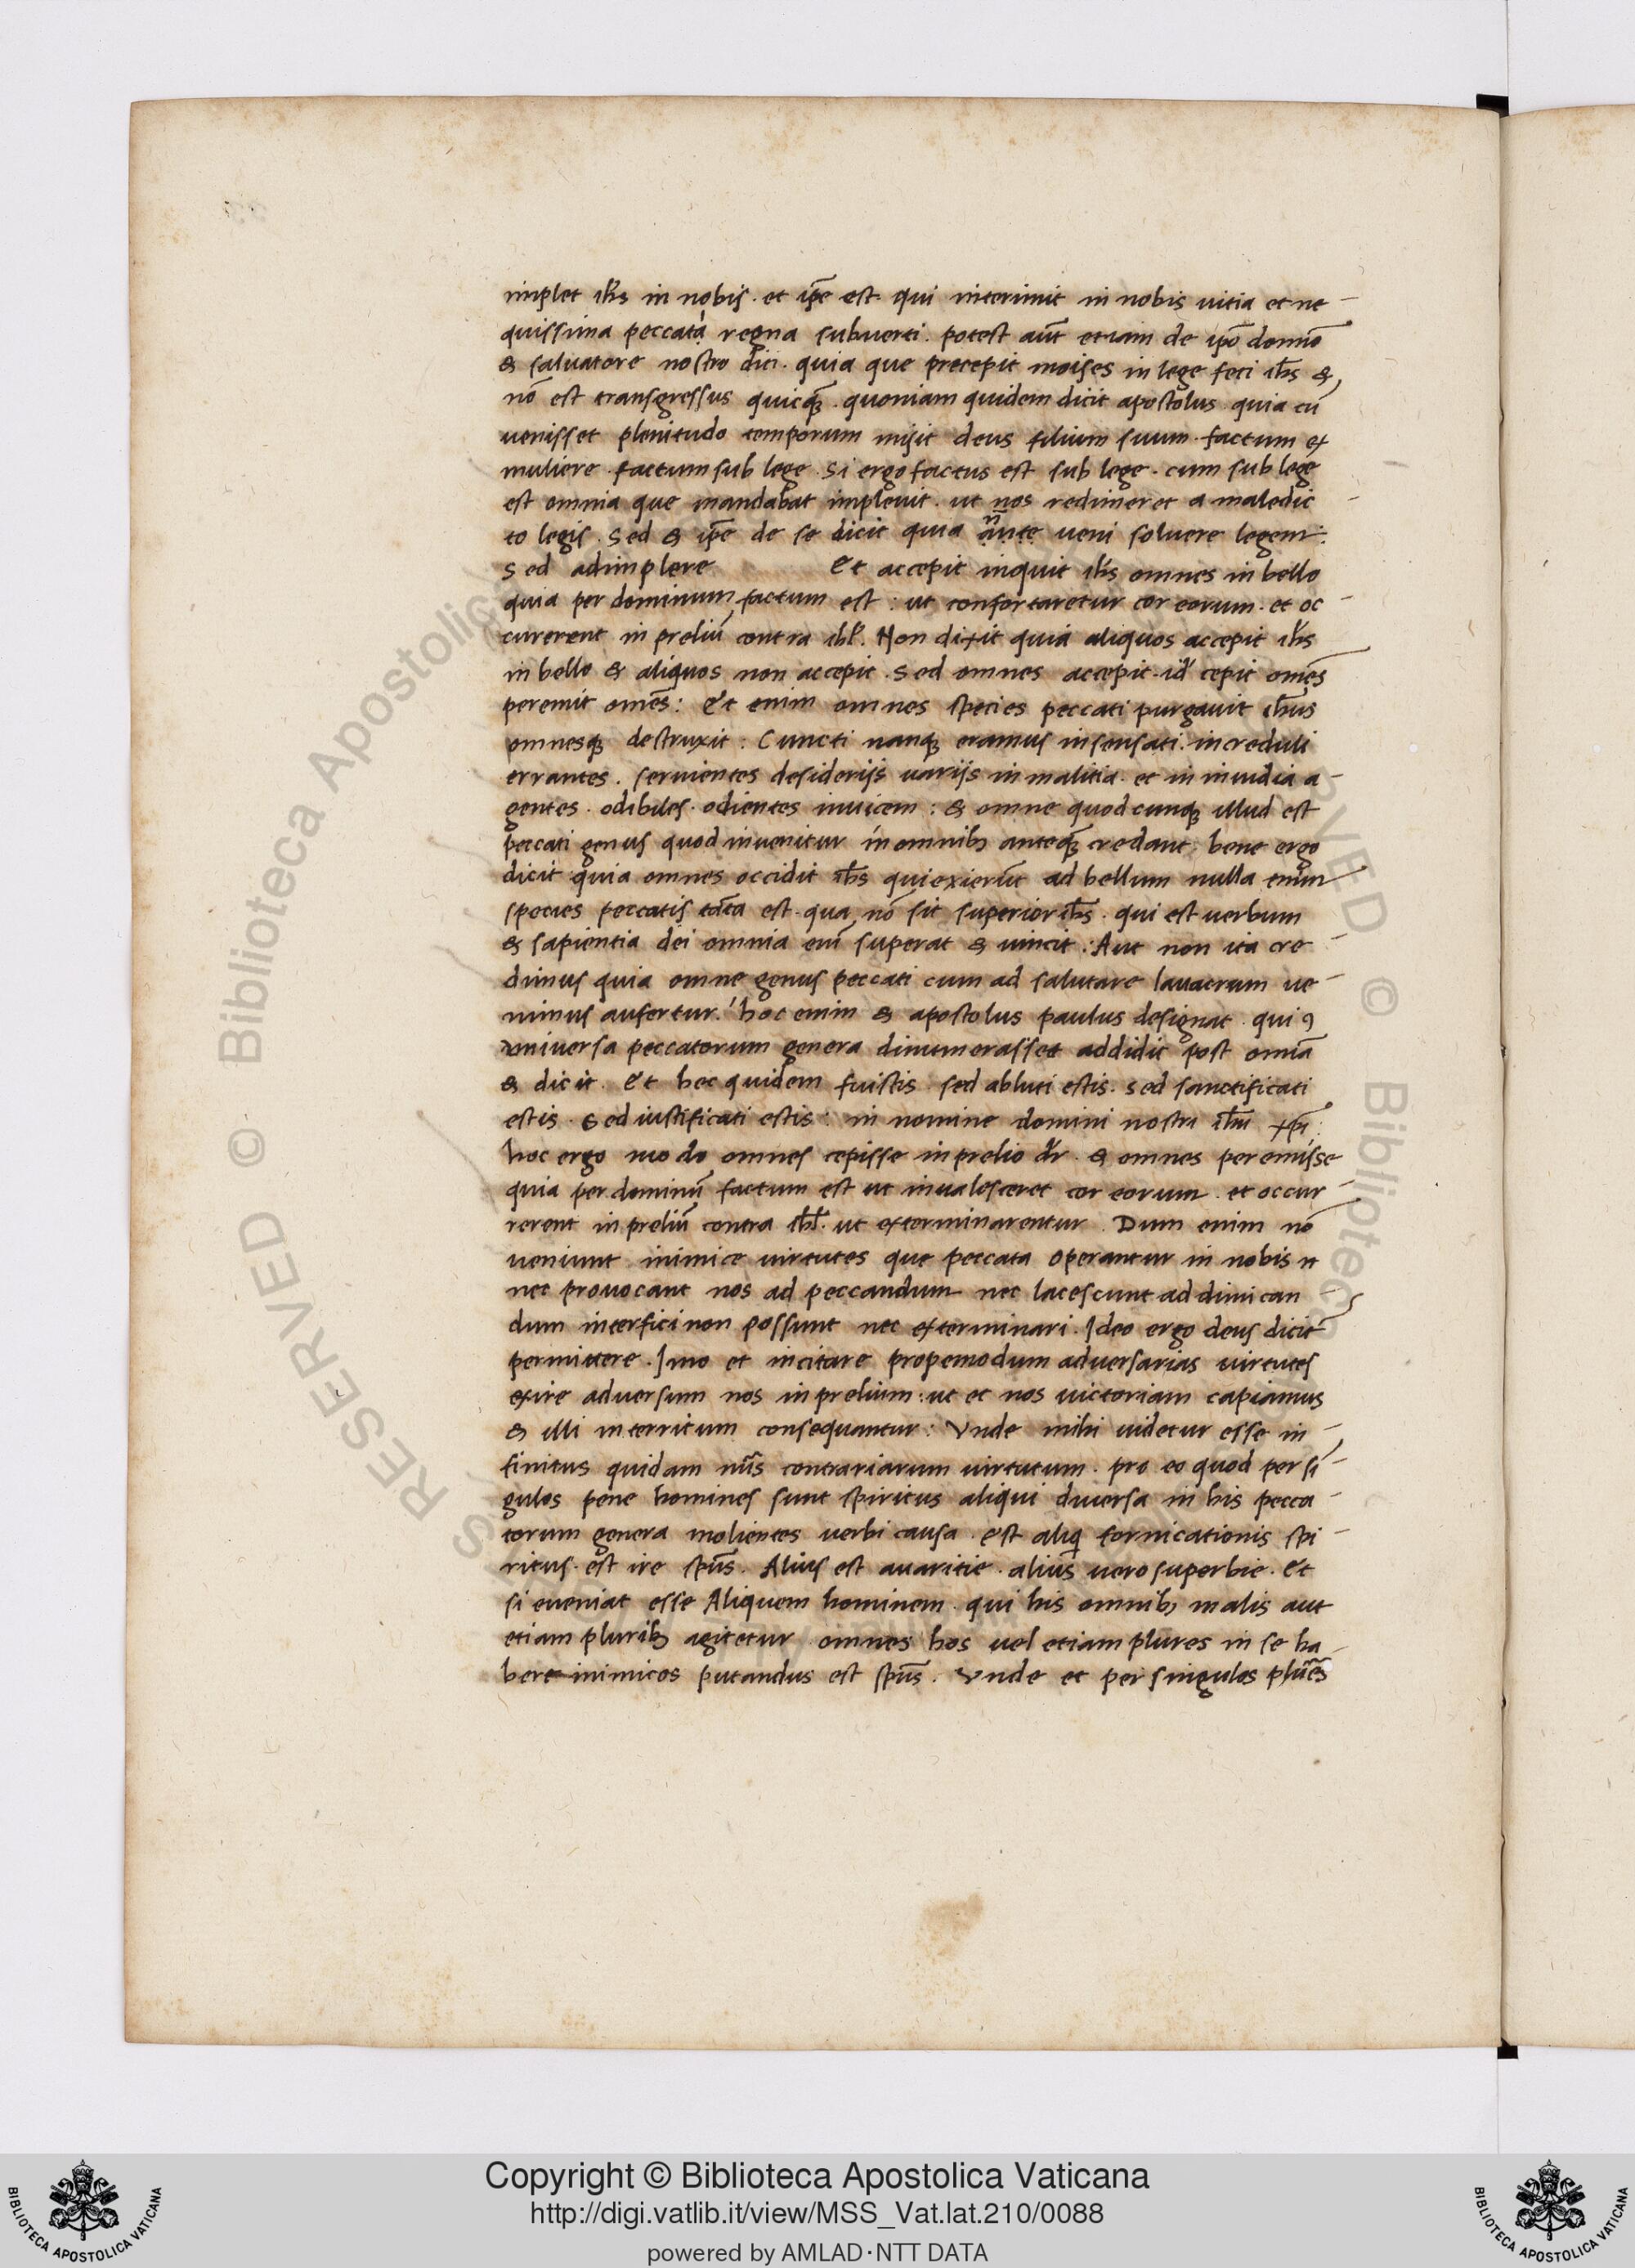 implet ihs in nobis. et ip̄e est qui interimit in nobis uitia et ne-
quissima peccata regna subuerti. potest aut̄ etiam de ip̄o domīo
& saluatore nostro dici. quia que precepit moises in lege feci ihs &
nō est transgressus quicq̄. quoniam quidem dicit apostolus quia cū
uenisset plenitudo temporum misit deus filium suum. factum ex
muliere. factum sub lege. Si ergo factus est sub lege. cum sub lege
est omnia que mandabat impleuit. ut nos redimeret a maledic-
to legis. Sed & ip̄e de se dicit quia ueni soluere legem:
Sed adimplere Et accepit inquit ihs omnes in bello
quia per dominum factum est: ut confortaretur cor eorum. et oc-
curerent in preliū contra ihl. Non dixit quia aliquos accepit ihs
in bello & aliquos non accepit. Sed omnes accepit. id cepit om̄es
peremit om̄es: Et enim omnes species peccati purgauit ihus
omnesq; destruxit: Cuncti nanq; eramus insensati. increduli
errantes. seruientes desiderijs uarijs in malitia. et in inuidia a-
gentes. odibiles. odientes inuicem: & omne quodcunq; illud est
peccati genus quod inuenitur in omnib; anteq̄ credant. bene ergo
dicit quia omnes occidit ihs qui exierūt ad bellum nulla enim
species peccatis tāta est. qua nō sit superior ihs. qui est uerbum
& sapientia dei omnia enī superat & uincit: Aut non ita cre-
dimus quia omne genus peccati cum ad salutare lauacrum ue-
nimus aufertur! hoc enim & apostolus paulus designat. qui 9
uniuersa peccatorum genera dinumerasset addidit post omīa
& dicit. Et hec quidem fuistis sed abluti estis. sed sanctificati
estis. Sed iustificati estis: in nomine domini nostri ihu xpi:
hoc ergo modo omnes cepisse in prelio dr̄. & omnes peremisse
quia per dominū factum est ut inualesceret cor eorum. et occur-
rerent in preliū contra ihl. ut exterminarentur. Dum enim nō
ueniunt inimice uirtutes que peccata operantur in nobis n
nec prouocant nos ad peccandum nec lacescunt ad dimican-
dum interfici non possunt nec exterminari. Ideo ergo deus dicit̄
permittere. Imo et incitare propemodum aduersarias uirtutes
exire aduersum nos in prelium: ut et nos uictoriam capiamus
& illi interritum consequantur: Vnde mihi uidetur esse in-
finitus quidam nūs contrariarum uirtutum. pro eo quod per sī-
gulos pene homines sunt spiritus aliqui diuersa in his pecca-
torum genera molientes uerbi causa. est aliq fornicationis spi-
ritus. est ire spūs. Alius est auaritie. alius uero superbie. Et
si eueniat esse Aliquem hominem. qui his omnib; malis aut
etiam plurib; agitetur omnes hos uel etiam plures in se ha-
bere inimicos putandus est spūs. Vnde et per singulos plūes
Copyright © Biblioteca Apostolica Vaticana
http://digi.vatlib.it/view/MSS_Vat.lat.210/0088
powered by AMLAD·NTT DATA
BIBLIOTECA APOSTOLICA VATICANA
BIBLIOTECA APOSTOLICA VATICANA